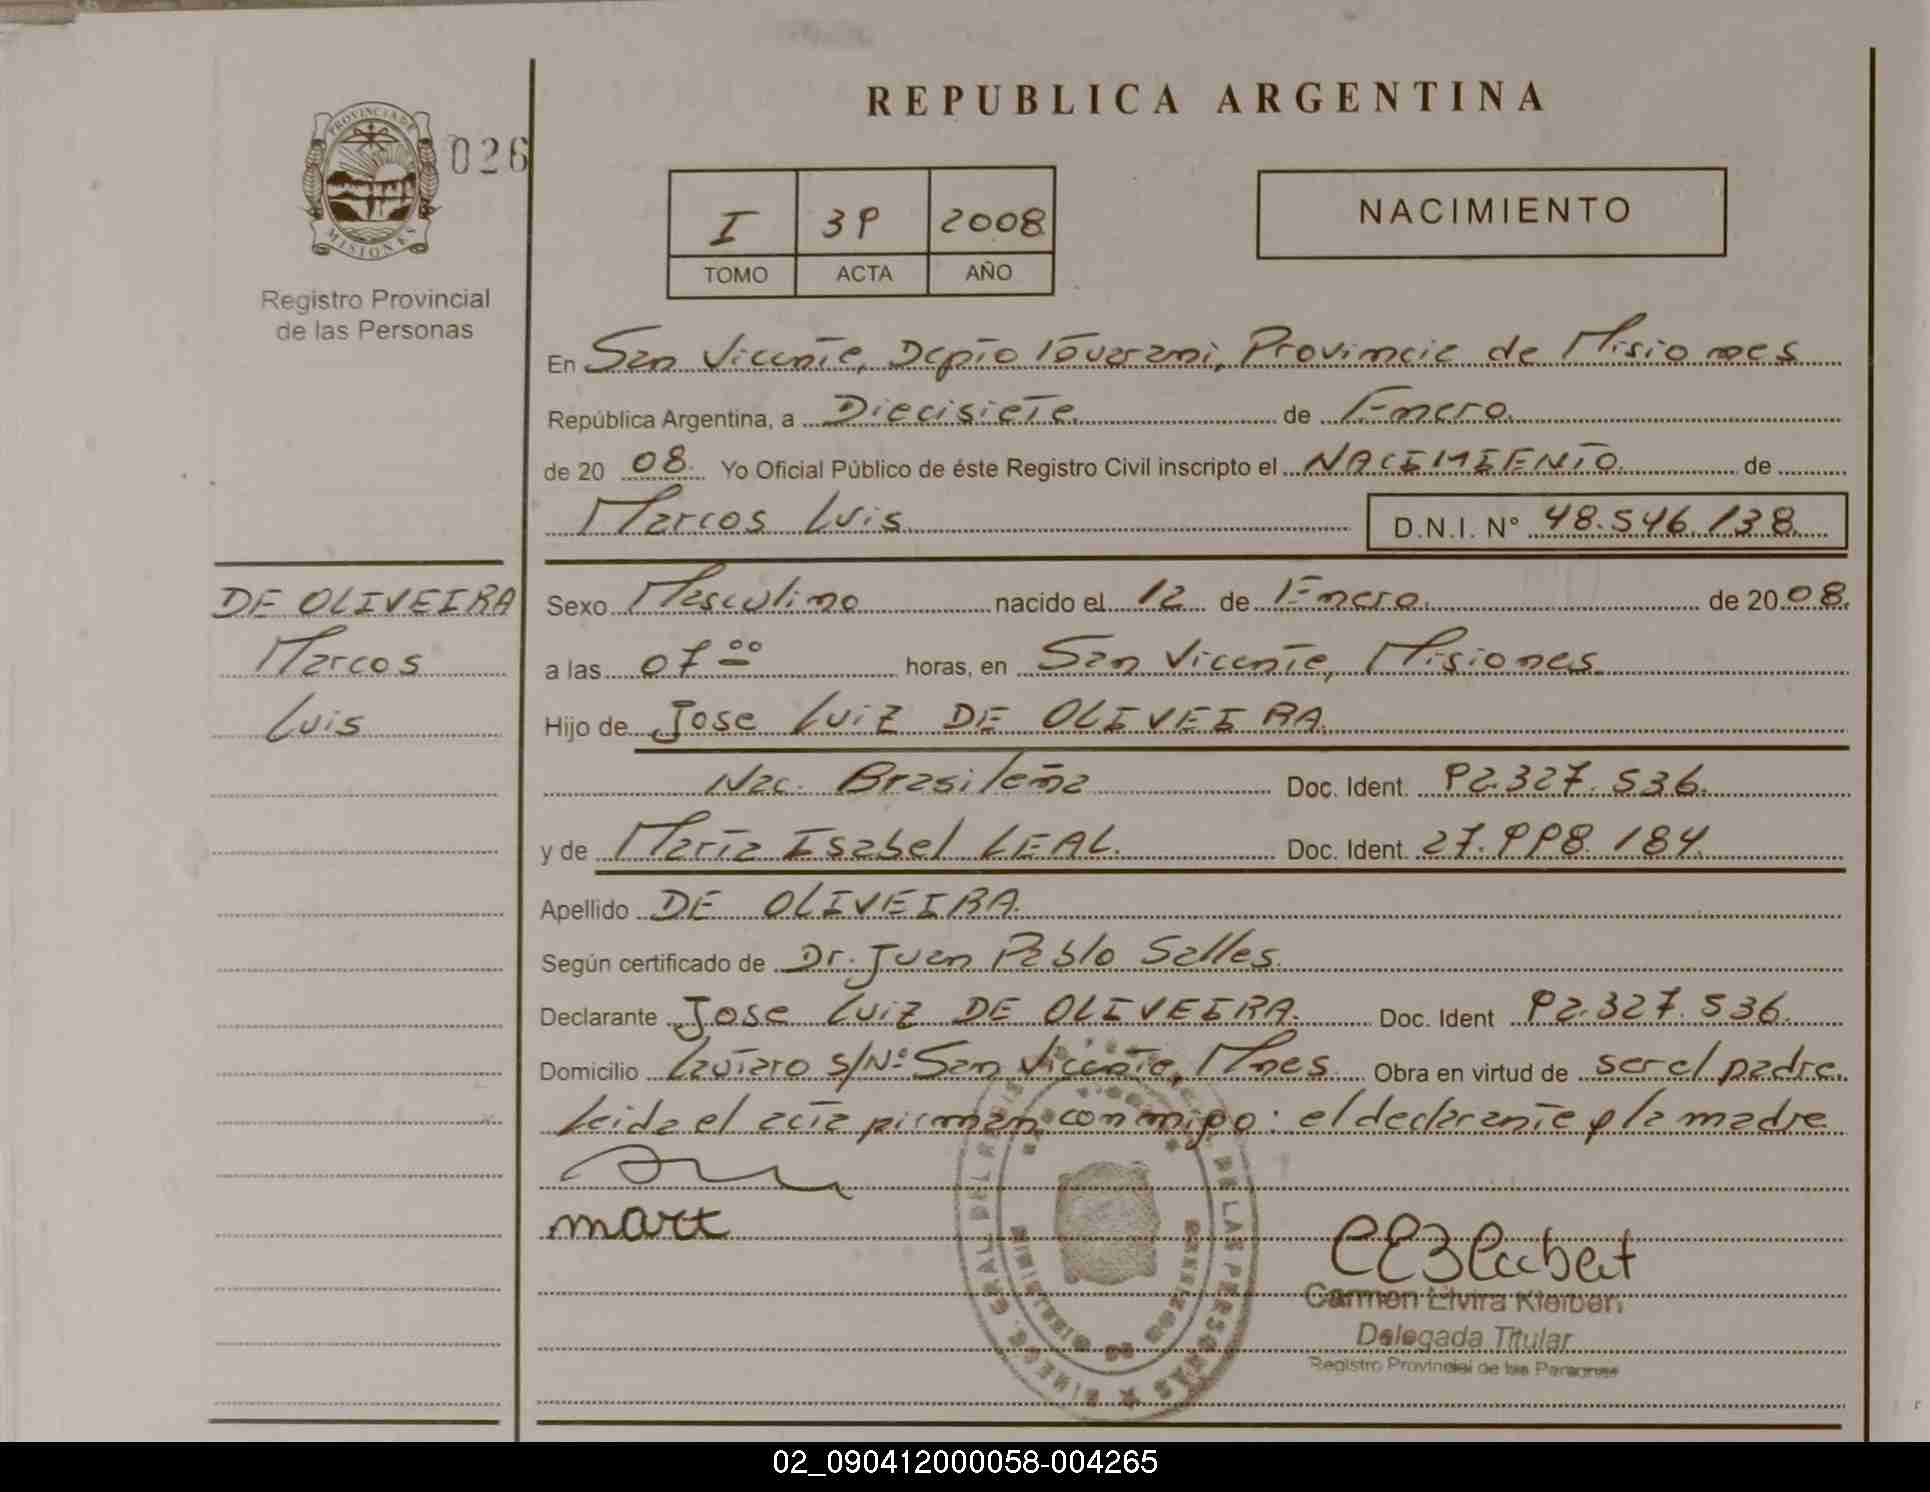 REPUBLICA ARGENTINA
PROVINCIA DE MISIONES
026
Registro Provincial
de las Personas
I 39 2008
TOMO ACTA AÑO
NACIMIENTO
En San Vicente, Depto Guarani, Provincia de Misiones
República Argentina, a Diecisiete de Enero.
de 20 08. Yo Oficial Público de éste Registro Civil inscripto el NACIMIENTO de
Marcos Luis D.N.I. N° 48.546.138.
DE OLIVEIRA
Marcos
Luis
Sexo Masculino nacido el 12 de Enero. de 20 08.
a las 07 00 horas, en San Vicente, Misiones
Hijo de Jose Luiz DE OLIVEIRA.
Nac. Brasileña Doc. Ident. 92.327.536.
y de María Isabel LEAL. Doc. Ident. 27.998.184
Apellido DE OLIVEIRA
Según certificado de Dr. Juan Pablo Salles.
Declarante Jose Luiz DE OLIVEIRA. Doc. Ident 92.327.536.
Domicilio Lautaro S/N° San Vicente, Mnes. Obra en virtud de ser el padre.
Leida el acta firman conmigo: el declarante y la madre
mart
Carmen Elvira Kleibert
Delegada Titular
Registro Provincial de las Personas
DIREC. GRAL. DEL REGIS DE LAS PERSONAS
MISIONES
02_090412000058-004265